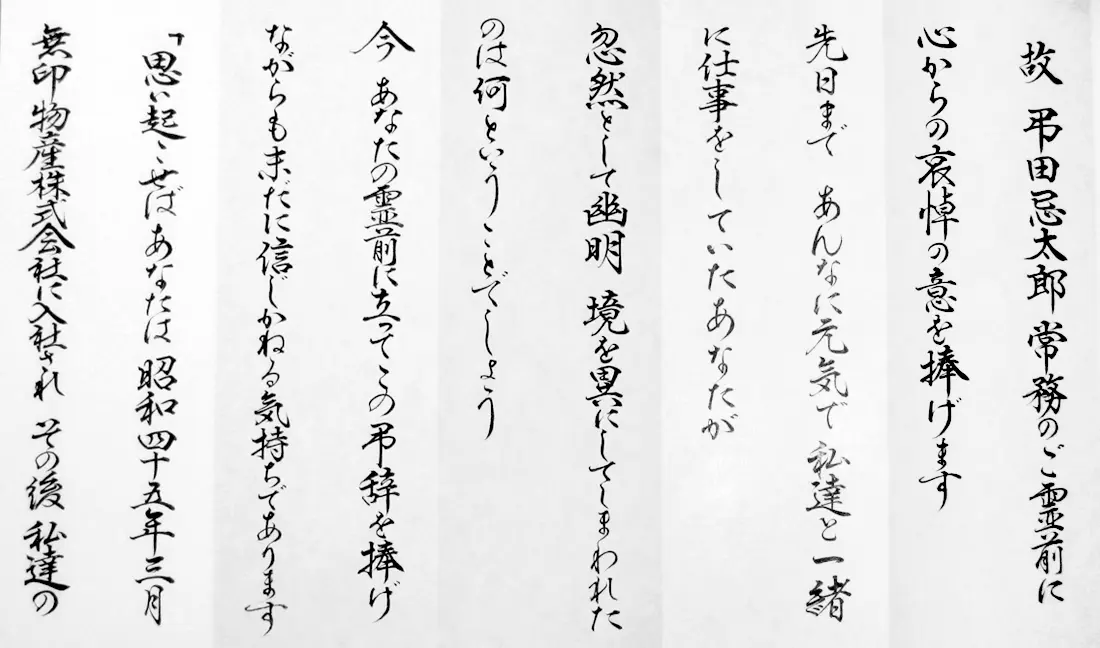 故 弔田忌太郎常務のご霊前に
心からの哀悼の意を捧げます
先日まで あんなに元気で 私達と一緒
に仕事をしていたあなたが
忽然として幽明 境を異にしてしまわれた
のは何ということでしょう
今 あなたの霊前に立ってこの弔辞を捧げ
ながらも未だに信じかねる気持ちであります
「思い起こせばあなたは昭和四十五年三月
無印物産株式会社に入社され その後 私達の